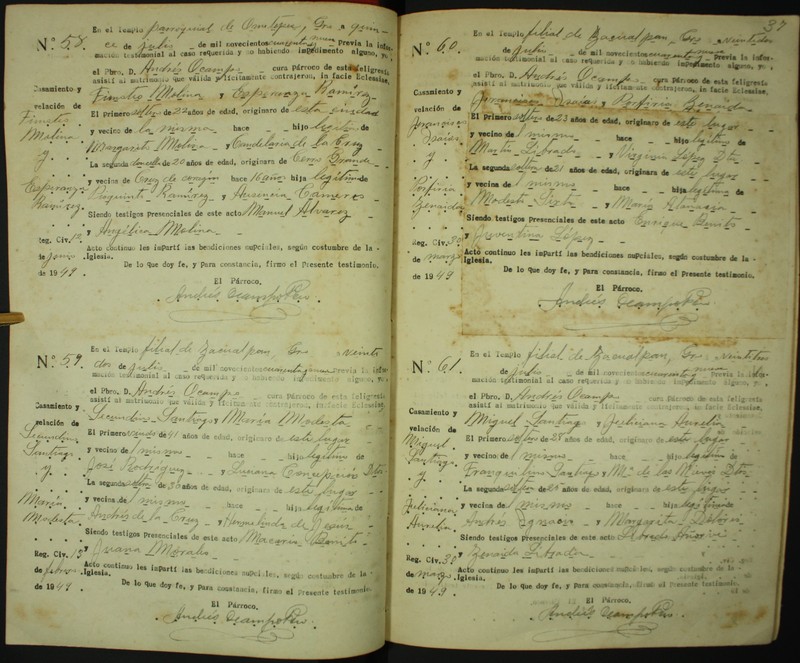 En el Templo parroquial de Ometepec, Gro. a quin-
N.º 58. ce de Julio de mil novecientos cuarenta y nueve Previa la infor-
mación testimonial al caso requerida y no habiendo impedimento alguno, yo,
el Pbro. D. Andrés Ocampo cura Párroco de esta feligresía
asistí al matrimonio que válida y lícitamente contrajeron, in facie Eclesiae,
Casamiento y Molina y Esperanza Ramírez
velación de El Primero soltero de 22 años de edad, originaro de esta ciudad
y vecino de la misma hace hijo legítimo de
Molina Margarito Molina y Candelaria de la Cruz
y La segunda de 20 años de edad, originara de Cerro Grande
Esperanza y vecina de Cruz de hace 16 años hija legítima de
Ramírez. Ramírez y Ausencia
Siendo testigos Presenciales de este acto Manuel Alvarez
y Angélica Molina
Reg. Civ. Acto continuo les impartí las bendiciones nupciales, según costumbre de la
de Junio Iglesia.
de 1949 De lo que doy fe, y para constancia, firmo el Presente testimonio.
El Párroco,
Andrés Ocampo
En el Templo filial de Zacualpan, Gro. veinti
N.º 59. dos de Julio de mil novecientos cuarenta y nueve Previa la infor-
mación testimonial al caso requerida y no habiendo impedimento alguno, yo,
el Pbro. D. Andrés Ocampo cura Párroco de esta feligresía
asistí al matrimonio que válida y lícitamente contrajeron, in facie Eclesiae,
Casamiento y Secundino Santiago y María Modesta
velación de El Primero viudo de 41 años de edad, originaro de este lugar
Secundino y vecino de mismo hace hijo legítimo de
Santiago José Rodríguez y Susana Concepción Dtos
y La segunda soltera de 30 años de edad, originara de este lugar
María y vecina de mismo hace hija legítima de
Modesta Andrés de la Cruz y Hermelinda de Jesús
Siendo testigos Presenciales de este acto Macario Benito
y Juana Morales
Reg. Civ. 13 Acto continuo les impartí las bendiciones nupciales, según costumbre de la
de febrero Iglesia.
de 1949 De lo que doy fe, y para constancia, firmo el Presente testimonio.
El Párroco,
Andrés Ocampo
37
En el Templo filial de Zacualpan Gro veintidos
N.º 60. de Julio de mil novecientos cuarenta y nueve Previa la infor-
mación testimonial al caso requerida y no habiendo impedimento alguno, yo,
el Pbro. D. Andrés Ocampo cura Párroco de esta feligresía
asistí al matrimonio que válida y lícitamente contrajeron, in facie Eclesiae,
Casamiento y Francisco Isaías y Porfiria Zenaida
velación de El Primero soltero de 23 años de edad, originaro de este lugar
Francisco y vecino de mismo hace hijo legítimo de
Isaías Martín Librado y Virginia López Dtos
y La segunda soltera de 21 años de edad, originara de este lugar
Porfiria y vecina de mismo hace hija legítima de
Zenaida Modesto Sixto y María Atanacia
Siendo testigos Presenciales de este acto Enrique Benito
y Preventina López
Reg. Civ. 30 Acto continuo les impartí las bendiciones nupciales, según costumbre de la
de marzo Iglesia.
de 1949 De lo que doy fe, y para constancia, firmo el Presente testimonio.
El Párroco,
Andrés Ocampo
En el Templo filial de Zacualpan, Gro veintitres
N.º 61. de Julio de mil novecientos cuarenta y nueve Previa la infor-
mación testimonial al caso requerida y no habiendo impedimento alguno, yo,
el Pbro. D. Andrés Ocampo cura Párroco de esta feligresía
asistí al matrimonio que válida y lícitamente contrajeron, in facie Eclesiae,
Casamiento y Miguel Santiago y Feliciana Aurelia
velación de El Primero soltero de 28 años de edad, originaro de este lugar
Miguel y vecino de mismo hace hijo legítimo de
Santiago Santiago y Ma. de las Nieves Dtos
y La segunda soltera de años de edad, originara de este lugar
Feliciana y vecina de mismo hace hija legítima de
Aurelia Andrés Ignacio y Margarita
Siendo testigos Presenciales de este acto
y Zenaida Librada
Reg. Civ. 30 Acto continuo les impartí las bendiciones nupciales, según costumbre de la
de marzo Iglesia.
de 1949 De lo que doy fe, y para constancia, firmo el Presente testimonio.
El Párroco,
Andrés Ocampo